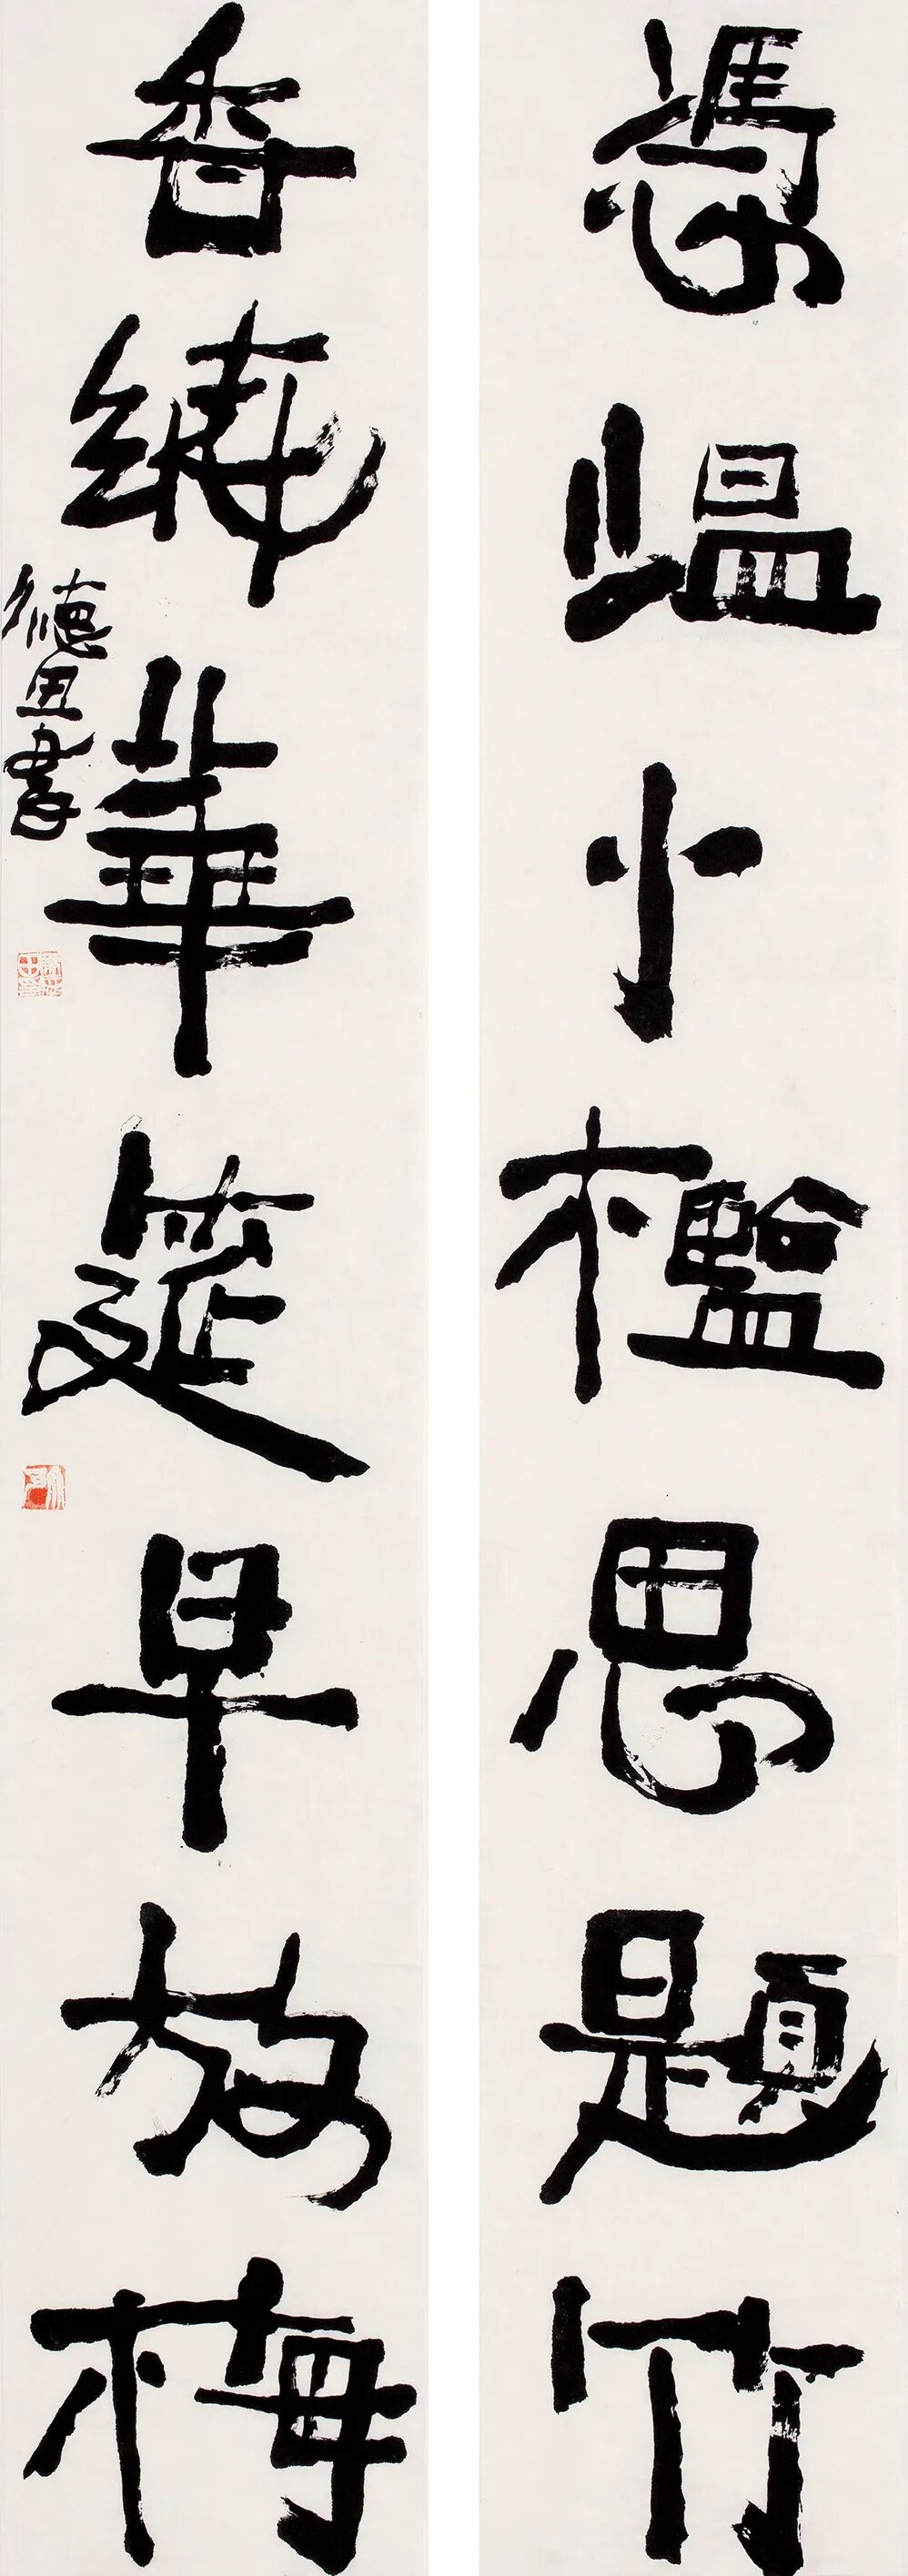 憑温小檻思題竹
香繞華筵早放梅
德 書